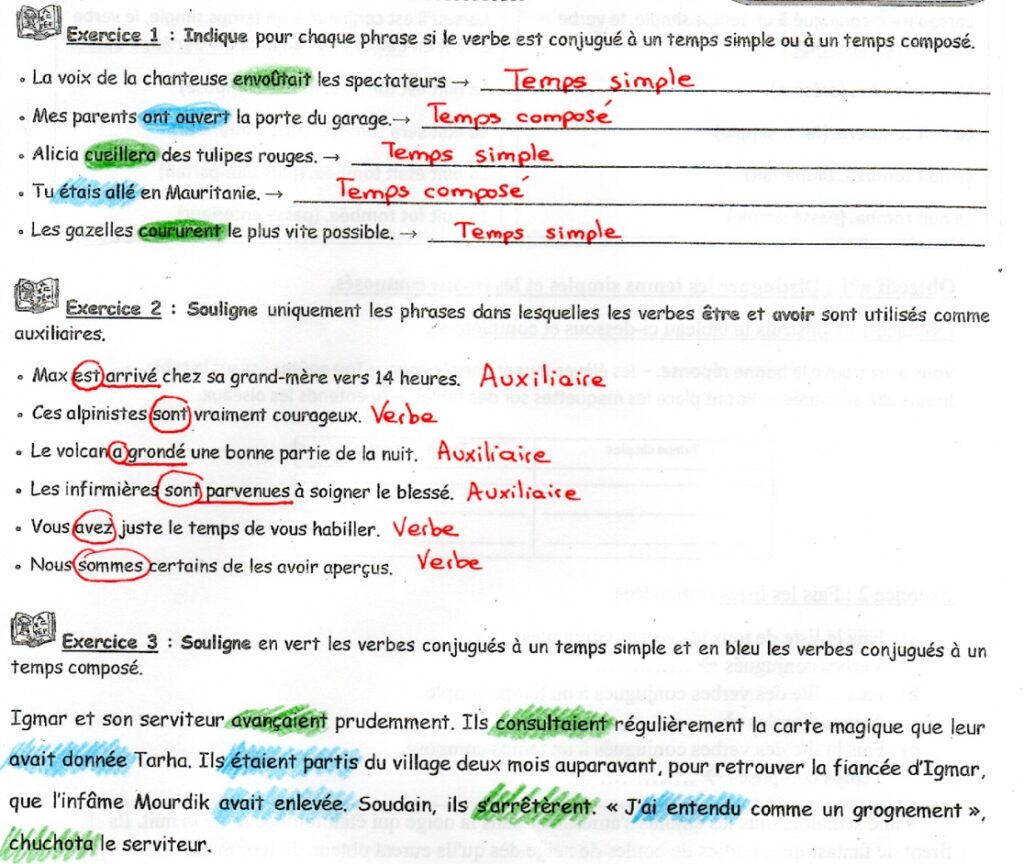 Exercice 1 : Indique pour chaque phrase si le verbe est conjugué à un temps simple ou à un temps composé.
• La voix de la chanteuse envoûtait les spectateurs → Temps simple
• Mes parents ont ouvert la porte du garage.→ Temps composé
• Alicia cueillera des tulipes rouges. → Temps simple
• Tu étais allé en Mauritanie. → Temps composé
• Les gazelles coururent le plus vite possible. → Temps simple
Exercice 2 : Souligne uniquement les phrases dans lesquelles les verbes être et avoir sont utilisés comme
auxiliaires.
• Max est arrivé chez sa grand-mère vers 14 heures. Auxiliaire
• Ces alpinistes sont vraiment courageux. Verbe
• Le volcan a grondé une bonne partie de la nuit. Auxiliaire
• Les infirmières sont parvenues à soigner le blessé. Auxiliaire
• Vous avez juste le temps de vous habiller. Verbe
• Nous sommes certains de les avoir aperçus. Verbe
Exercice 3 : Souligne en vert les verbes conjugués à un temps simple et en bleu les verbes conjugués à un
temps composé.
Igmar et son serviteur avançaient prudemment. Ils consultaient régulièrement la carte magique que leur
avait donnée Tarha. Ils étaient partis du village deux mois auparavant, pour retrouver la fiancée d'Igmar,
que l'infâme Mourdik avait enlevée. Soudain, ils s'arrêtèrent. « J'ai entendu comme un grognement »,
chuchota le serviteur.